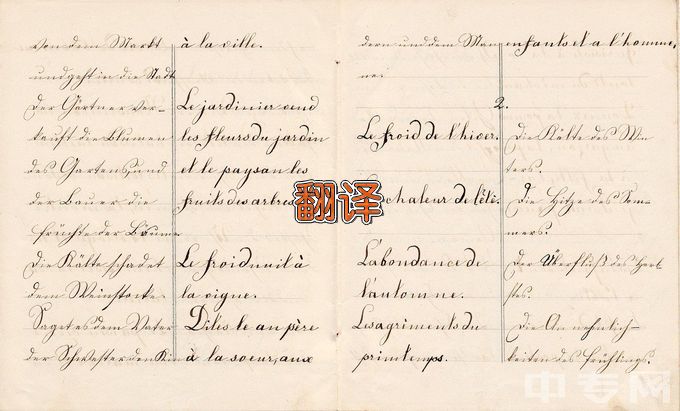 von dem Markt
und geht in die Stadt
Der Gärtner ver-
kauft die Blumen
des Gartens, und
der Bauer die
Früchte der Bäume.
Die Kälte schadet
dem Weinstocke.
Saget es dem Vater
der Schwester den Kin
à la ville.
Le jardinier vend
les fleurs du jardin
et le paysan les
fruits des arbres
Le froid nuit à
la vigne.
Dites le au père
à la soeur, aux
dern und dem Man
ne.
enfants et a l'homme,
2.
Le froid de l'hiver.
chaleur de l'été.
L'abondance de
l'automne.
Les agriments du
printemps.
Die Kälte des Win
ters.
Die Hitze des Som-
mers.
Der Überfluß des Herb
stes.
Die Annehmlich-
keiten des Frühlings.
翻译
中专网